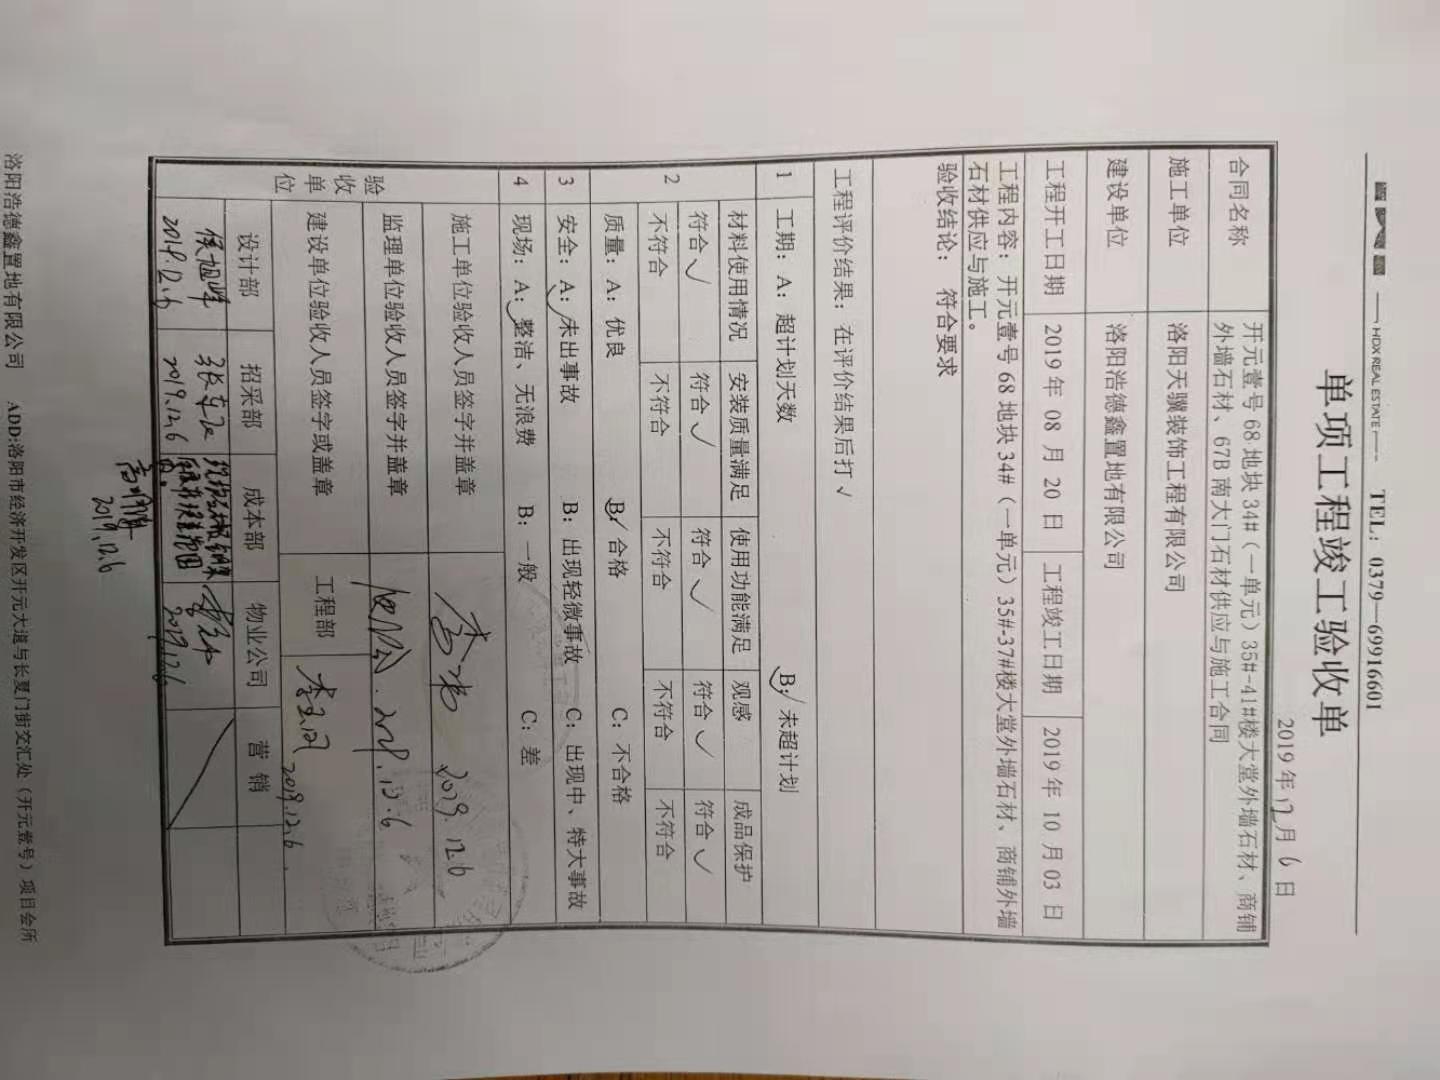 HDX REAL ESTATE
TEL：0379—69916601
单项工程竣工验收单
2019年12月6日
合同名称 开元壹号68地块34#（一单元）35#-41#楼大堂外墙石材、商铺
外墙石材、67B南大门石材供应与施工合同
施工单位 洛阳天骥装饰工程有限公司
建设单位 洛阳浩德鑫置地有限公司
工程开工日期 2019年08月20日 工程竣工日期 2019年10月03日
工程内容：开元壹号68地块34#（一单元）35#-37#楼大堂外墙石材、商铺外墙
石材供应与施工。
验收结论：符合要求
工程评价结果：在评价结果后打√
1 工期：A：超计划天数 B：√未超计划
2 材料使用情况 安装质量满足 使用功能满足 观感 成品保护
符合√ 符合√ 符合√ 符合√ 符合√
不符合 不符合 不符合 不符合 不符合
质量：A：优良 B：√合格 C：不合格
3 安全：A：√未出事故 B：出现轻微事故 C：出现中、特大事故
4 现场：A：√整洁、无浪费 B：一般 C：差
验收单位
施工单位验收人员签字并盖章 2019.12.6
监理单位验收人员签字并盖章 2019.12.6
建设单位验收人员签字或盖章 工程部 2019.12.6
设计部 招采部 成本部 物业公司 营销
侯旭峰
2019.12.6 2019.12.6 2019.12.6
2019.12.6
洛阳浩德鑫置地有限公司 ADD:洛阳市经济开发区开元大道与长夏门街交汇处（开元壹号）项目会所